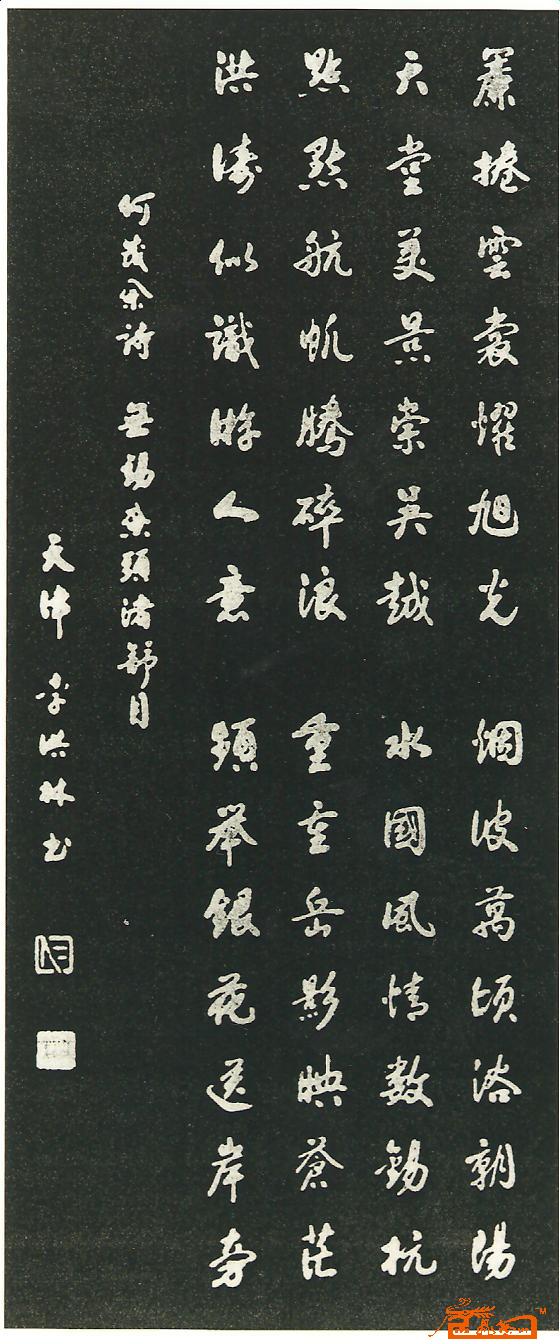 簾捲雲裳耀旭光 烟波萬頃浴朝陽
天堂美景崇吳越 水國風情數錫杭
點點航帆騰碎浪 重重岳影映蒼茫
洪濤似識游人意 頻舉銀花送岸旁
何茂余詩 無錫黿頭渚 目
天津 李洪林书